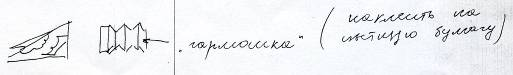 „гармошка" (наклеить на
плотную бумагу)